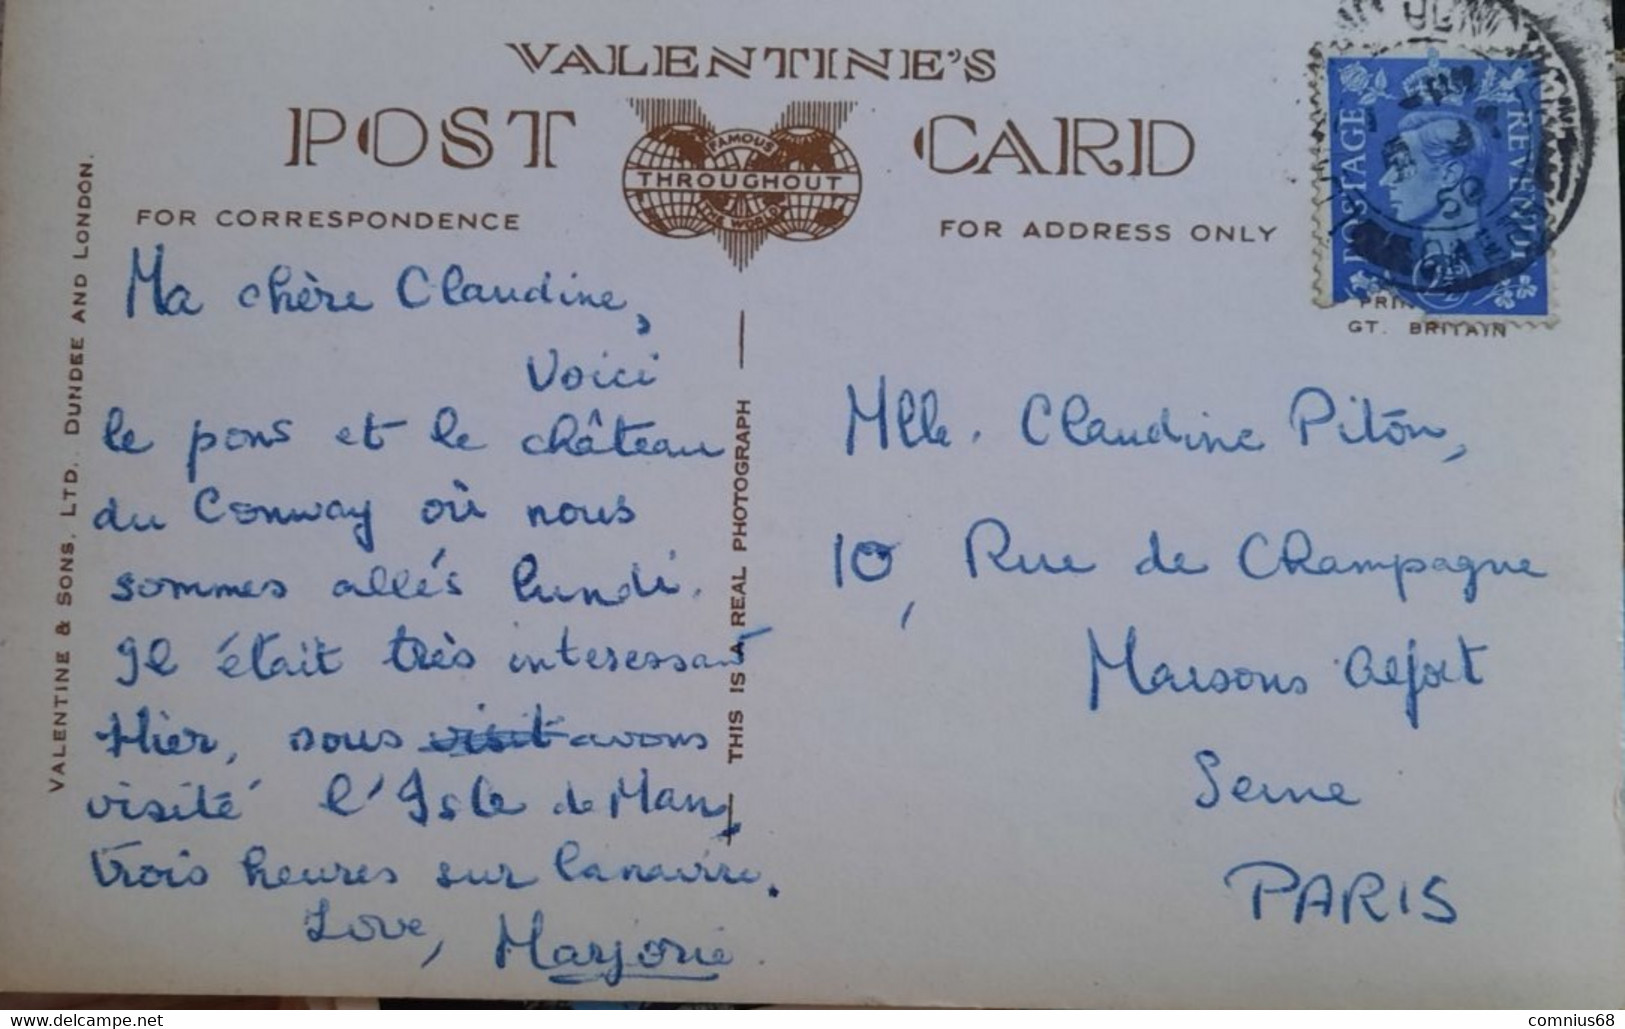 VALENTINE'S
POST CARD
FAMOUS
THROUGHOUT
THE WORLD
FOR CORRESPONDENCE
FOR ADDRESS ONLY
VALENTINE & SONS, LTD. DUNDEE AND LONDON.
THIS IS A REAL PHOTOGRAPH
POSTAGE
REVENUE
2½
50
GT. BRITAIN
Ma chère Claudine,
Voici
le pons et le château
du Conway où nous
sommes allés lundi.
Il était très interessant
Hier, nous visit avons
visité l'Isle de Man,
trois heures sur la navire.
Love, Marjorie
Mlle. Claudine Piton,
10, Rue de Champagne
Maisons Alfort
Seine
PARIS
comnius68